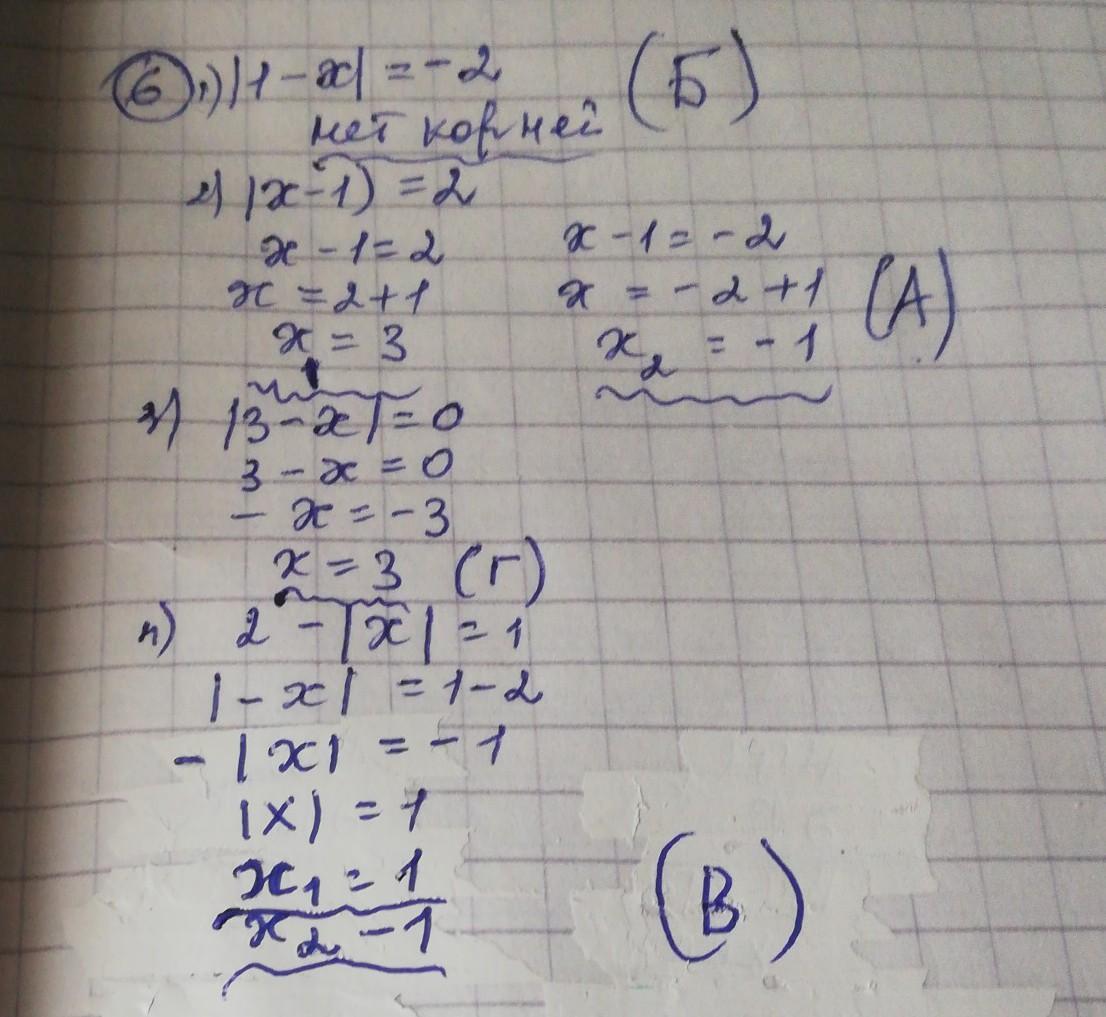 6 1) |1 - x| = -2 (Б)
нет корней
2) |x-1) = 2
x - 1 = 2 x - 1 = -2
x = 2+1 x = -2 +1 (А)
x = 3 x₂ = -1
3) |3 - x| = 0
3 - x = 0
- x = -3
x = 3 (Г)
4) 2 - |x| = 1
|- x| = 1-2
- |x| = -1
|x| = 1
x₁ = 1 (В)
x₂ -1